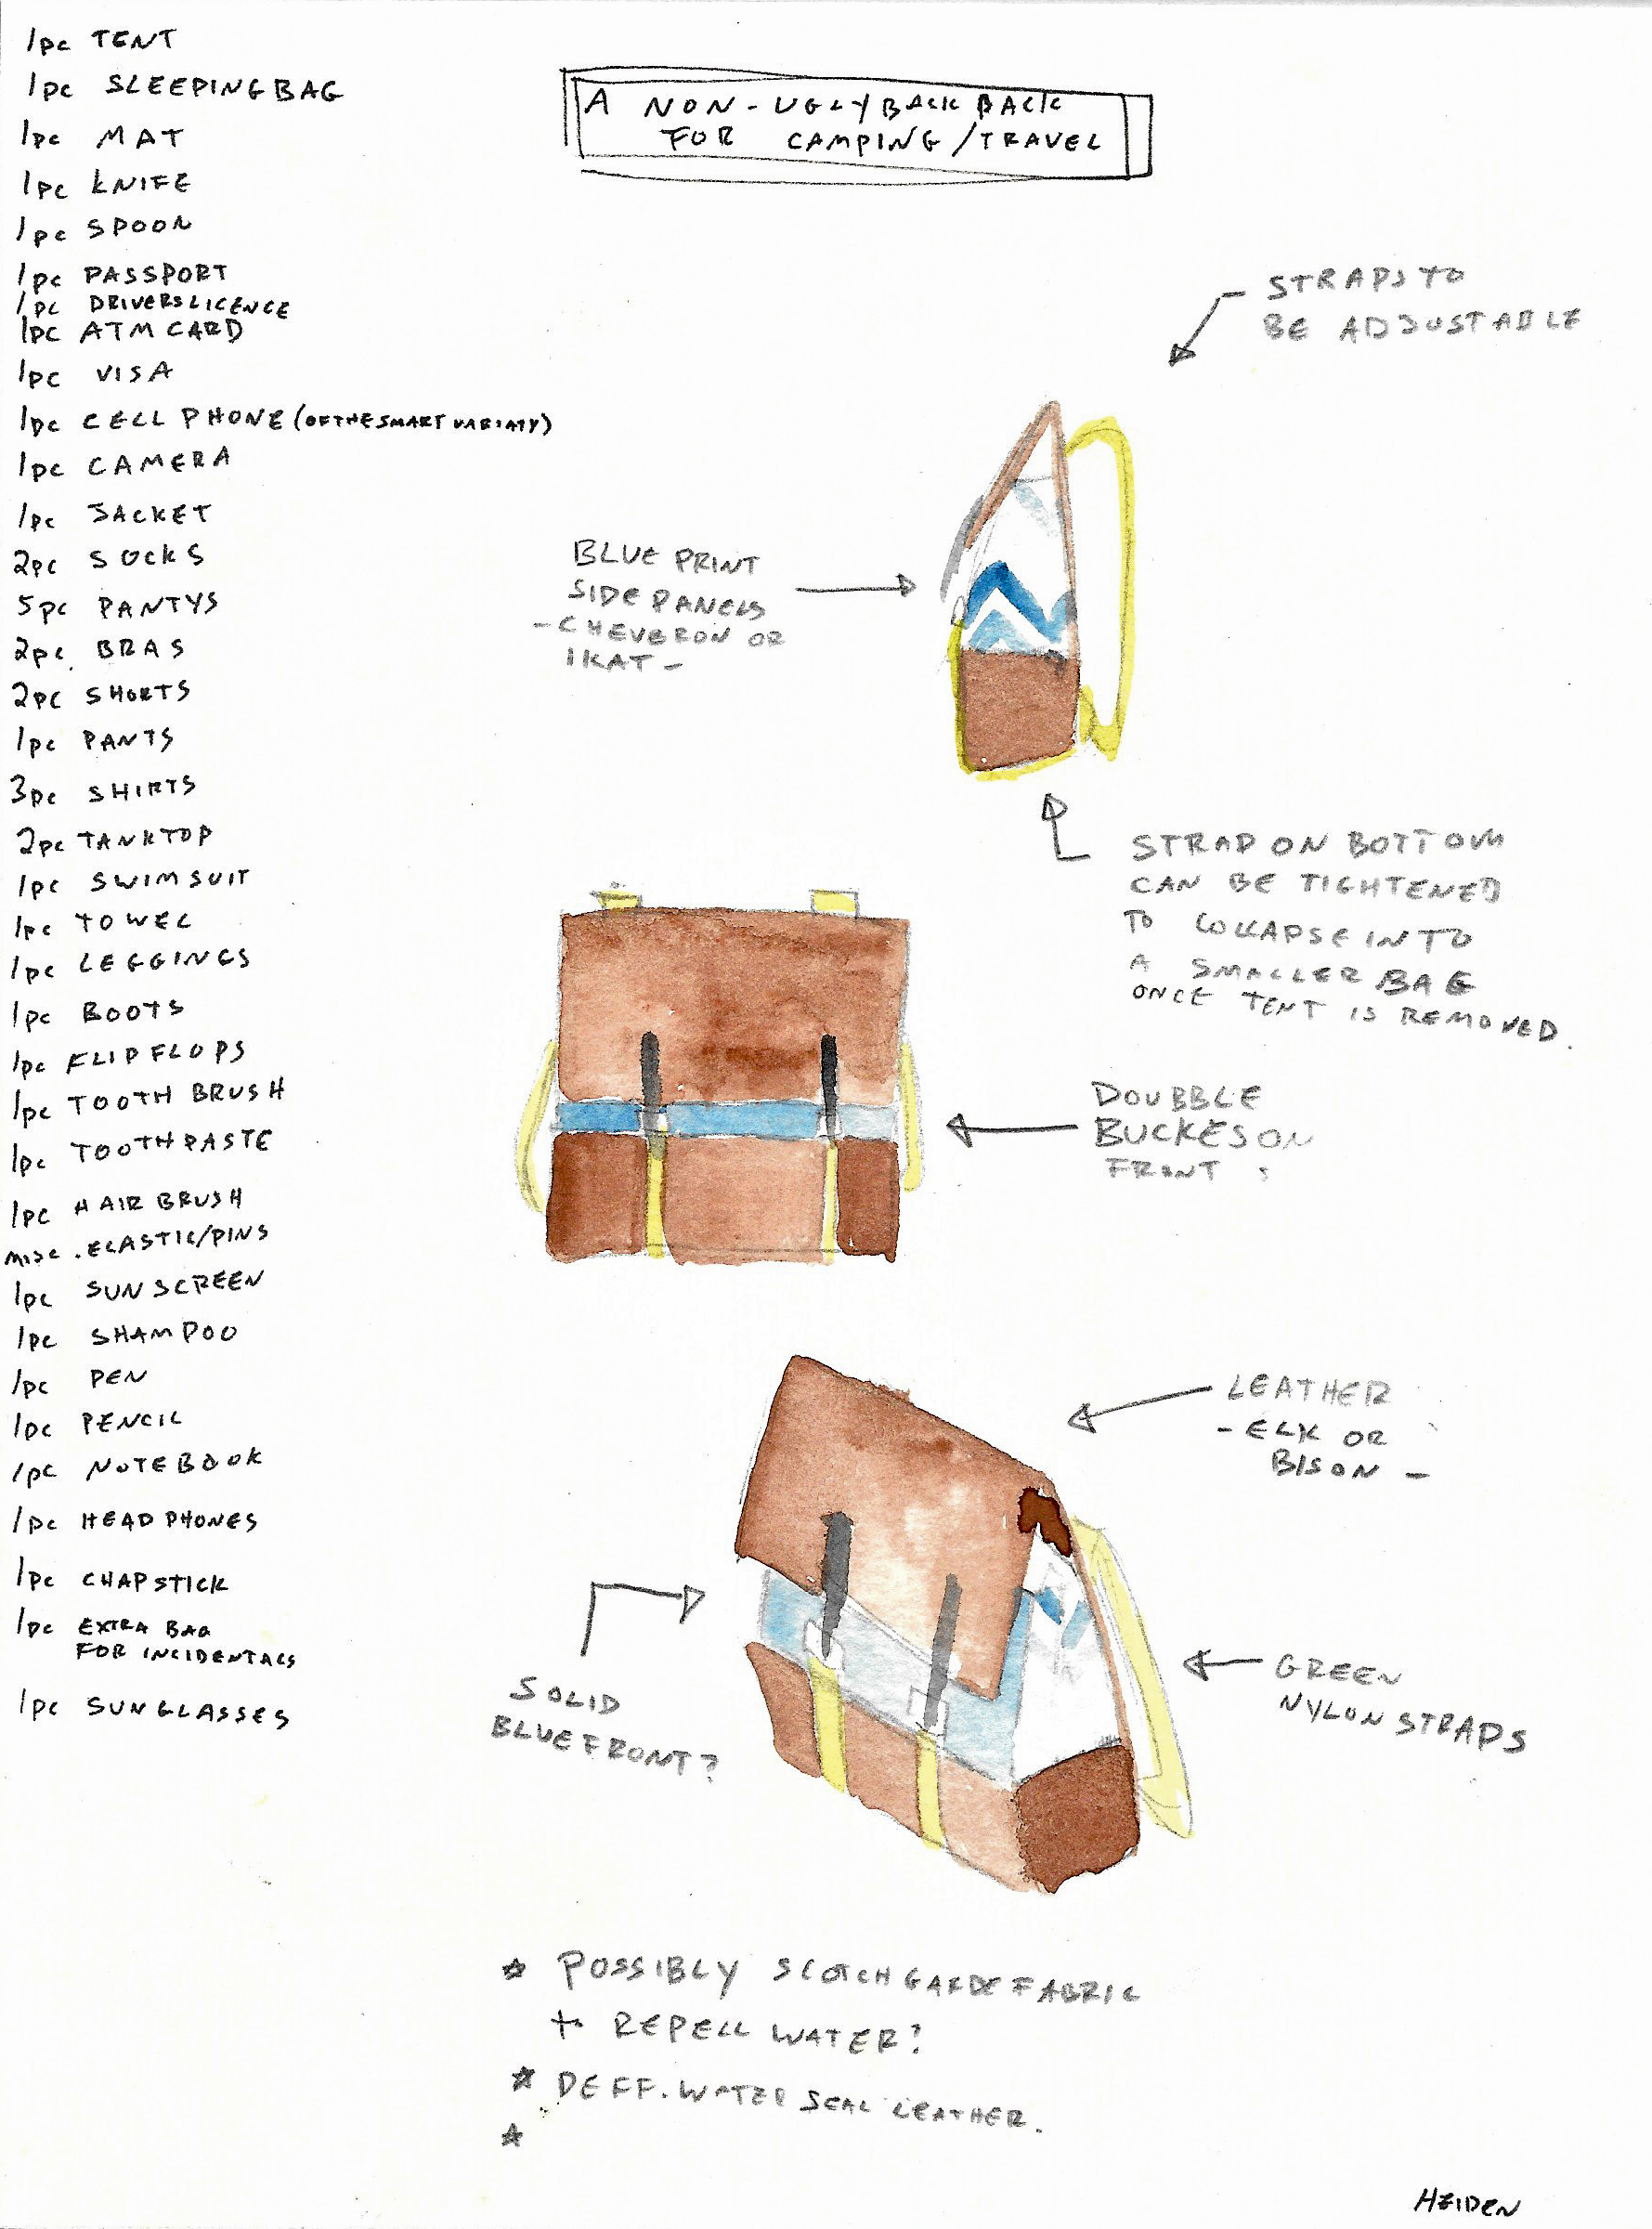 1pc TENT
1pc SLEEPINGBAG
1pc MAT
1pc KNIFE
1pc SPOON
1pc PASSPORT
1pc DRIVERSLICENCE
1pc ATM CARD
1pc VISA
1pc CELL PHONE (OF THE SMART VARIATY)
1pc CAMERA
1pc JACKET
2pc SOCKS
5pc PANTYS
2pc. BRAS
2pc SHORTS
1pc PANTS
3pc SHIRTS
2pc TANKTOP
1pc SWIMSUIT
1pc TOWEL
1pc LEGGINGS
1pc BOOTS
1pc FLIPFLOPS
1pc TOOTH BRUSH
1pc TOOTHPASTE
1pc HAIR BRUSH
misc. ELASTIC/PINS
1pc SUNSCREEN
1pc SHAMPOO
1pc PEN
1pc PENCIL
1pc NOTEBOOK
1pc HEADPHONES
1pc CHAPSTICK
1pc EXTRA BAG
FOR INCIDENTALS
1pc SUNGLASSES
A NON-UGLY BACKBACK
FOR CAMPING/TRAVEL
STRAPS TO
BE ADJUSTABLE
BLUE PRINT
SIDE PANELS
- CHEVERON OR
IKAT -
STRAP ON BOTTOM
CAN BE TIGHTENED
TO COLLAPSE INTO
A SMALLER BAG
ONCE TENT IS REMOVED.
DOUBBLE
BUCKES ON
FRONT
LEATHER
- ELK OR
BISON -
SOLID
BLUE FRONT?
GREEN
NYLON STRAPS
* POSSIBLY SCOTCHGARDE FABRIC
to REPELL WATER?
* DEFF. WATER SEAL LEATHER.
*
HEIDEN